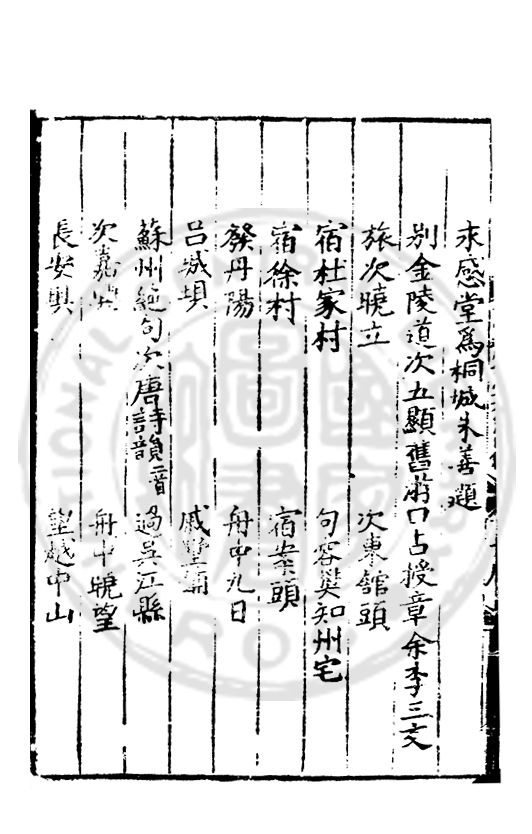 永感堂為桐城朱善題
別金陵道次五顯舊游口占授章余李三友
旅次曉立 次東館頭
宿杜家村 句容樊知州宅
宿徐村 宿柴頭
發丹陽 舟中九日
呂城埧 戚墅
蘇州絕句次唐詩韻二首 過吳江縣
次嘉興 舟中曉望
長安埧 望越中山